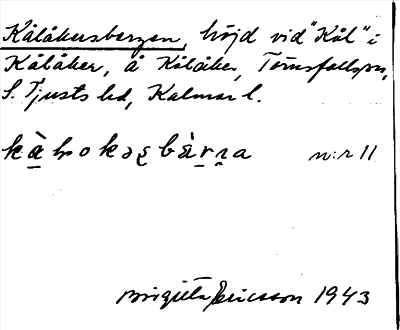 Kålåkersbergen, höjd vid "Kål" i
Kålåker, å Kålåker, Törnsfallssn,
S. Tjusts hd, Kalmar l.
n:r 11
Birgitta Ericsson 1943